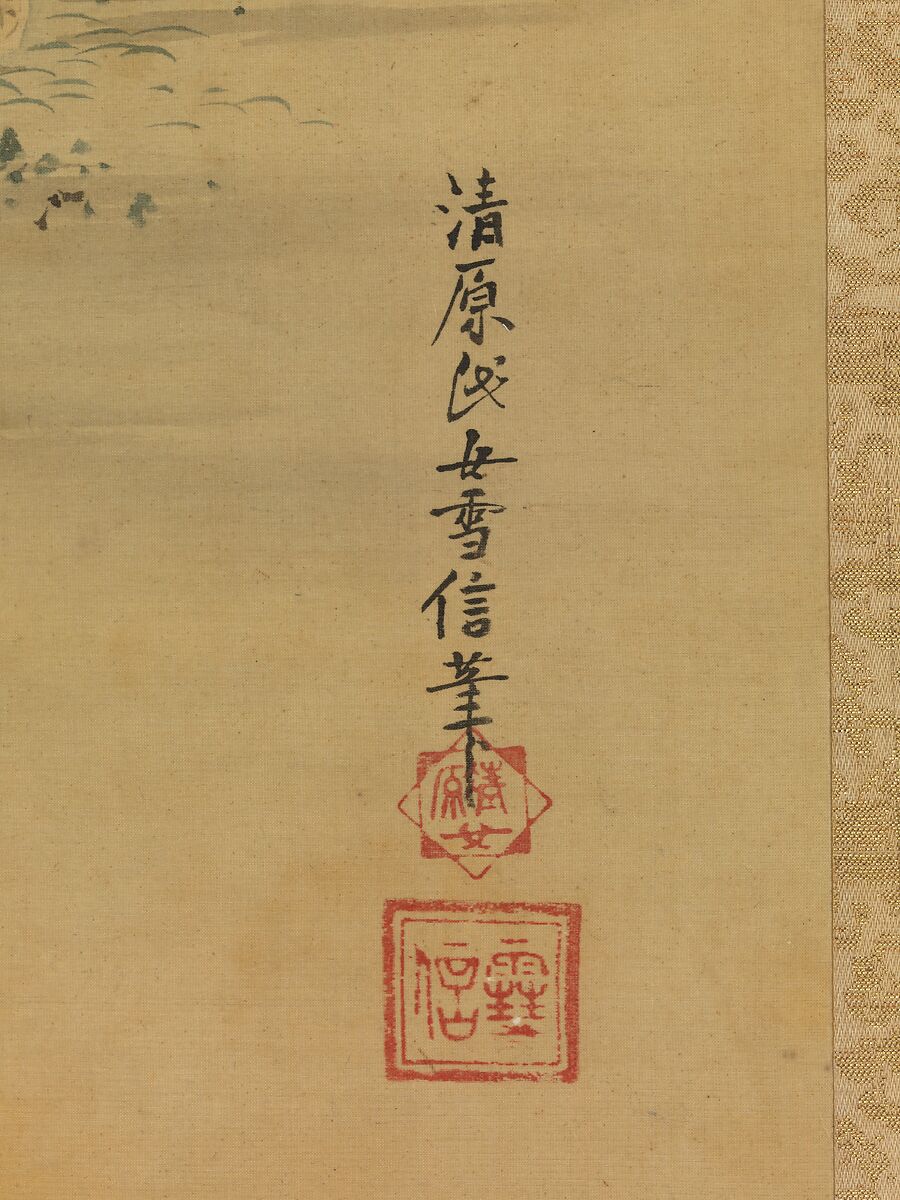 清原氏女雪信筆
清原女
雪信